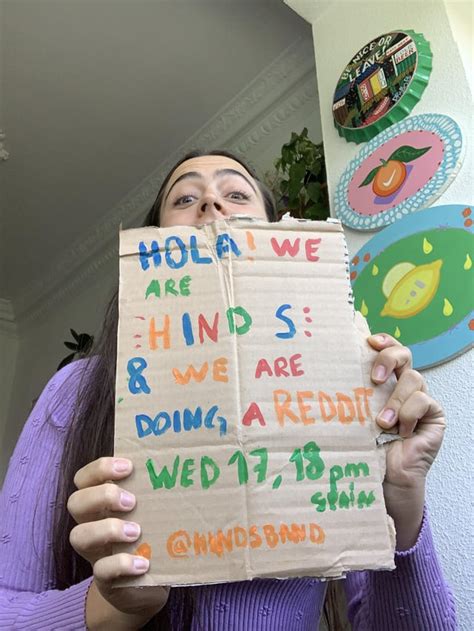 BE NICE OR
LEAVE!
HOLA! WE
ARE
HINDS
& WE ARE
DOING A REDDIT
WED 17, 18 pm
SPAIN
@HINDSBAND